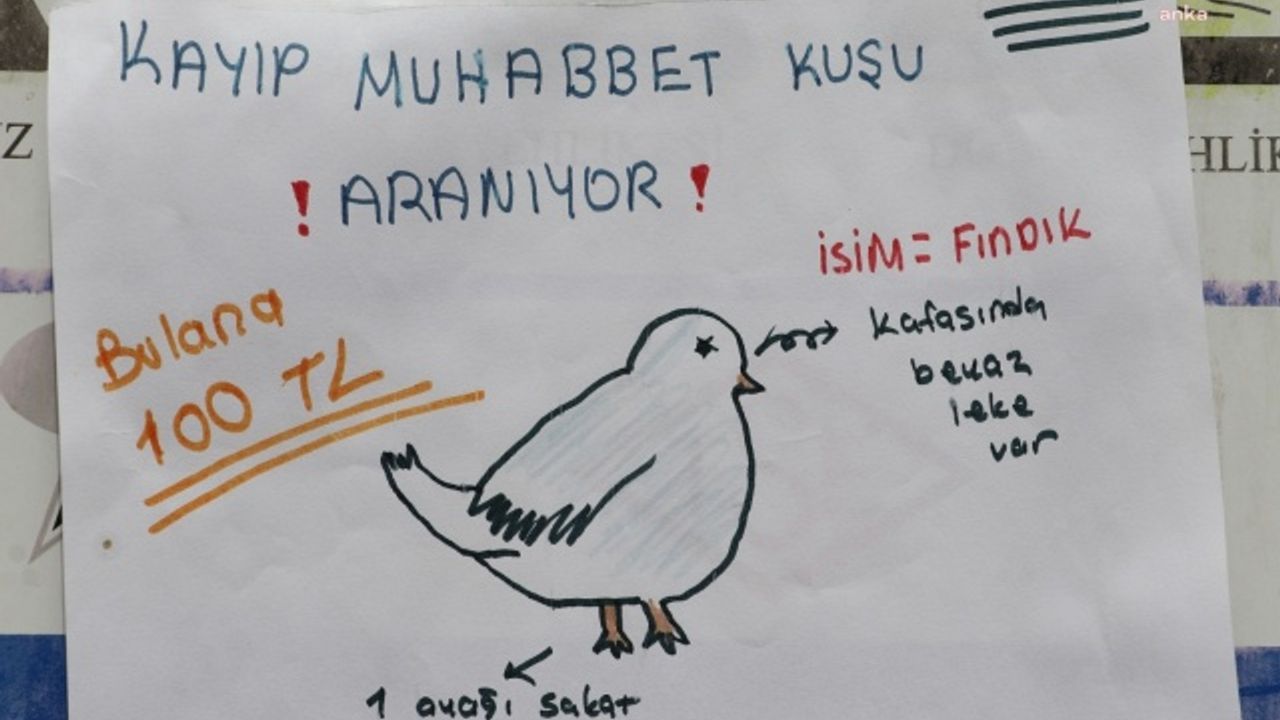 anka
KAYIP MUHABBET KUŞU
! ARANIYOR !
İSİM = FINDIK
Bulana
100 TL
Kafasında
beyaz
leke
var
1 ayağı sakat
Z
HLİK